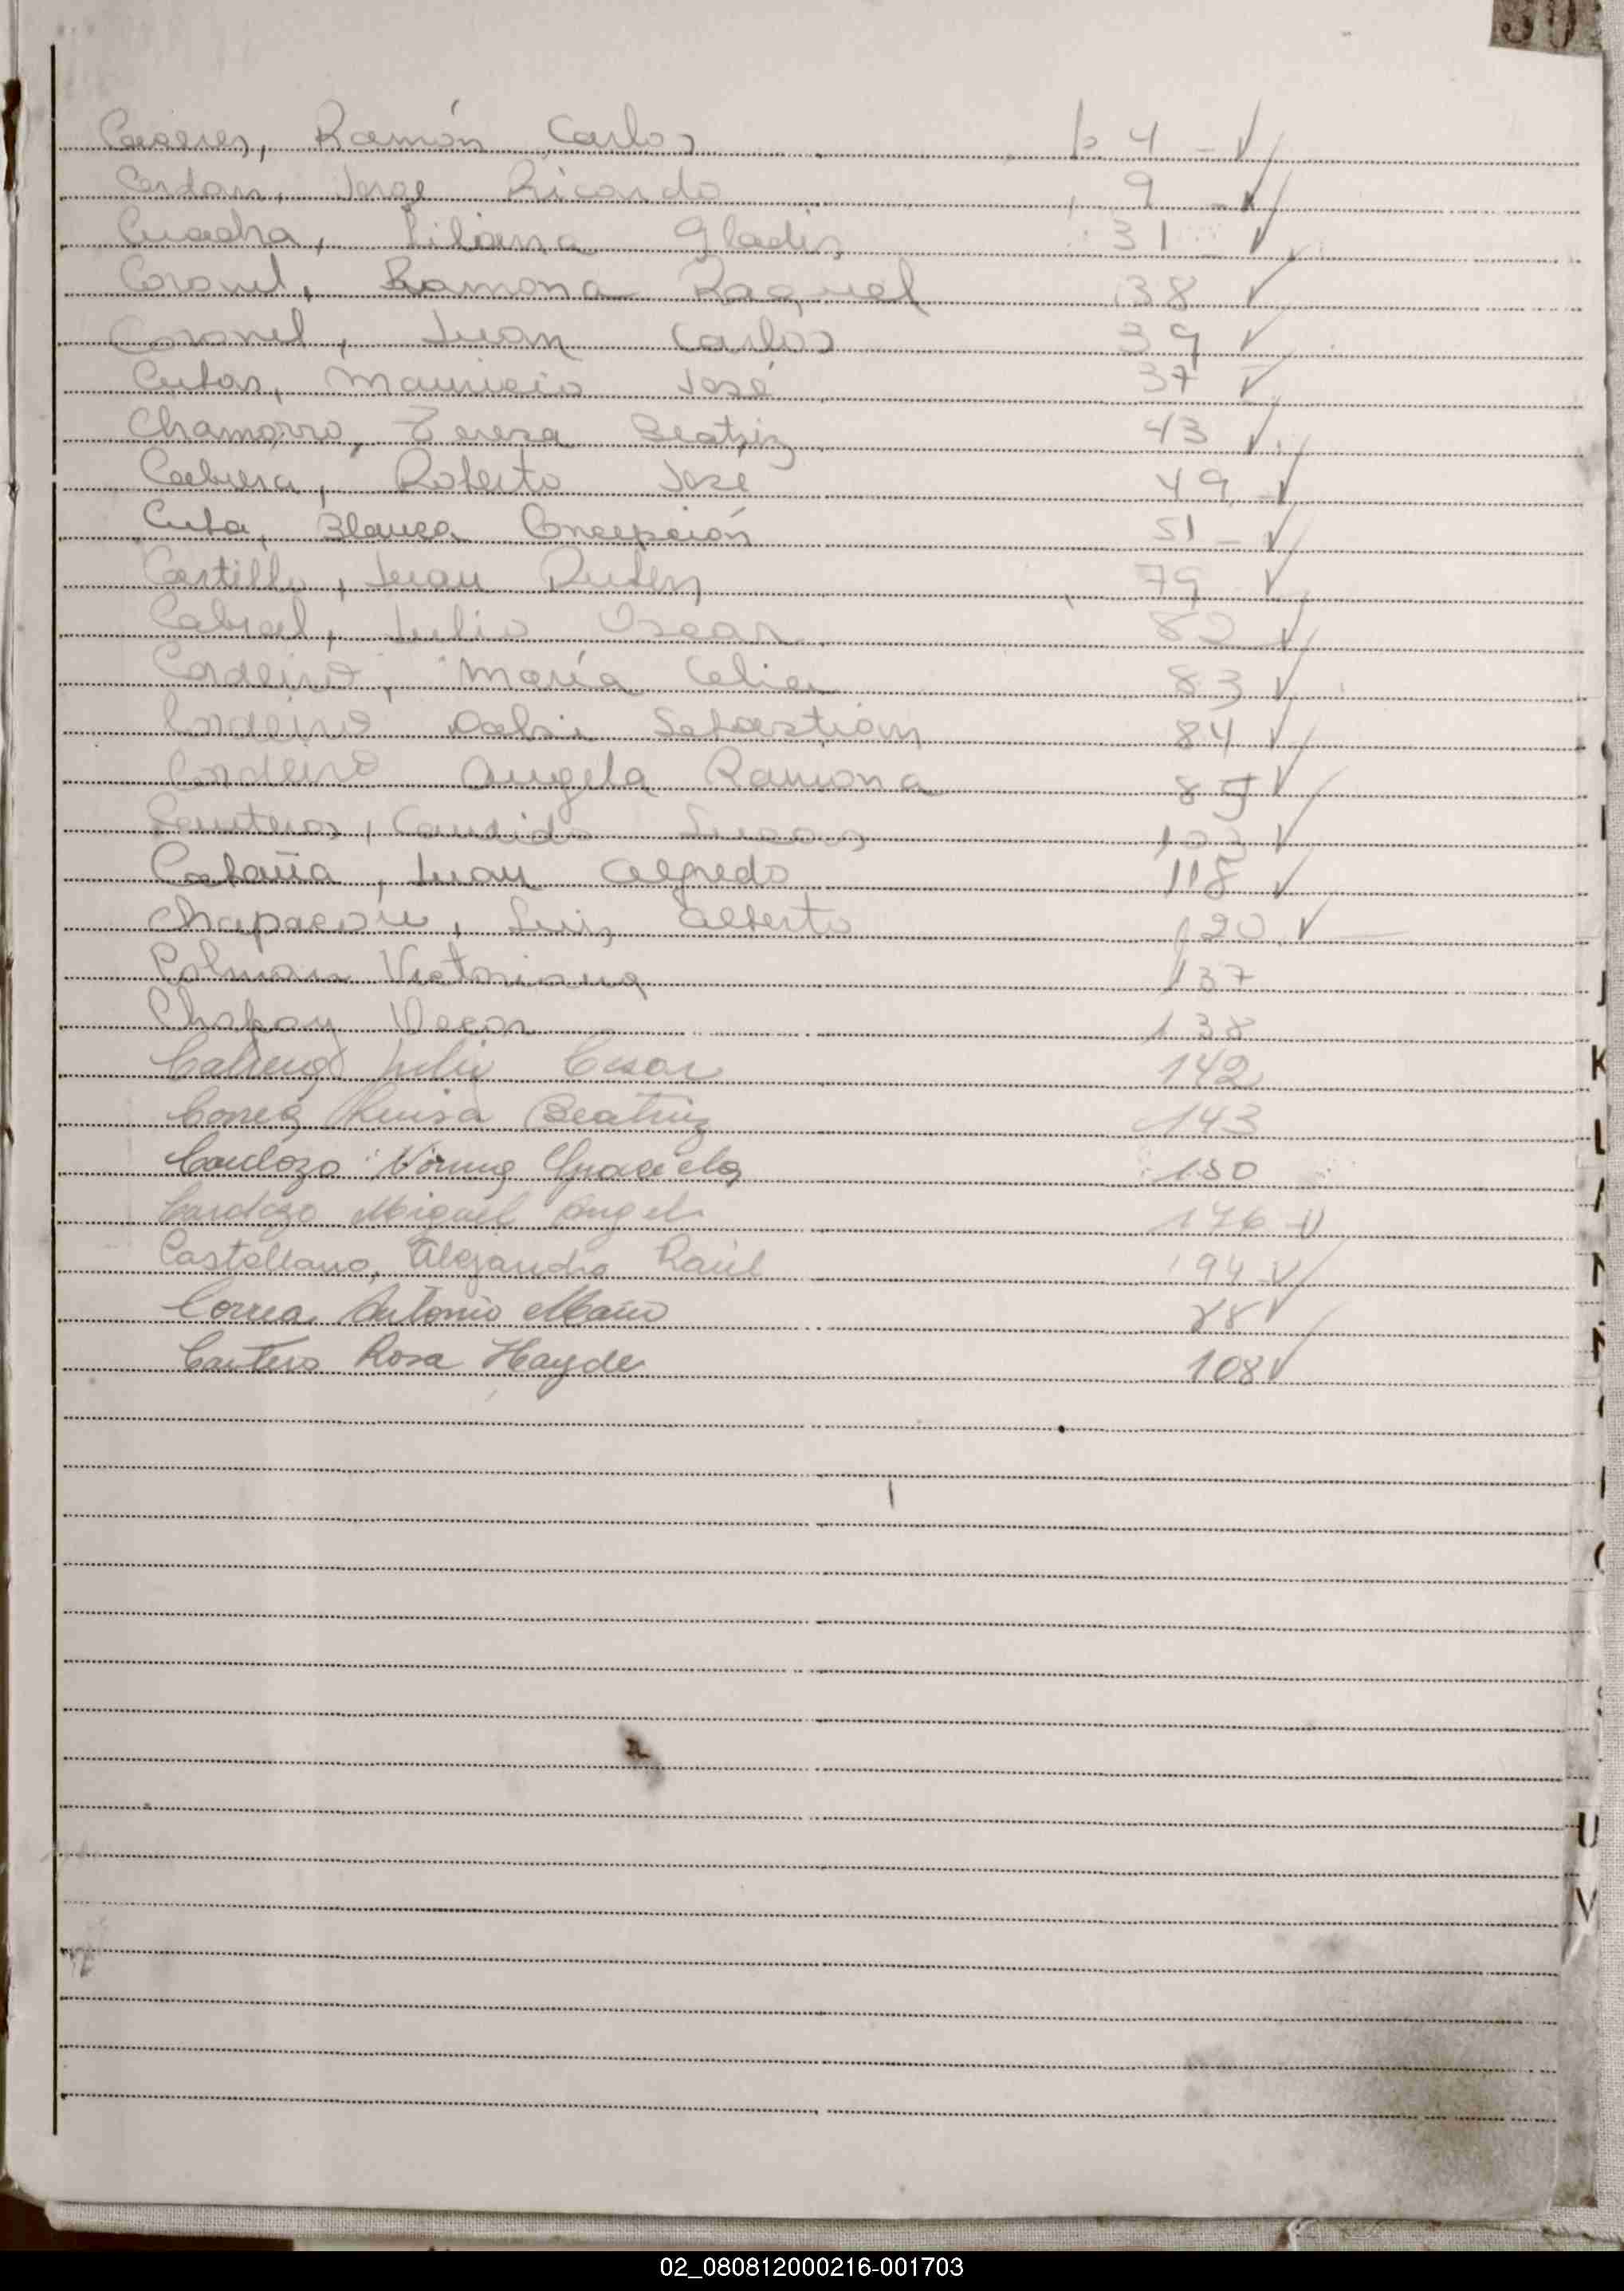 Caceres, Ramón Carlos p. 4 - ✓
Jorge Ricardo 9 - ✓
Cuadra, Liliana Gladis 31 ✓
Coronel, Ramona Raquel 38 ✓
Coronel, Juan Carlos 39 ✓
Mauricio José 37 ✓
Chamorro, Teresa Beatriz 43 ✓
Cabrera, Roberto José 49 ✓
Blanca Concepción 51 - ✓
Castillo, Juan Ruben 79 ✓
Cabral, Julio Oscar 82 ✓
Cordeiro, María Celia 83 ✓
Cordeiro Sebastián 84 ✓
Cordeiro Angela Ramona 85 ✓
Candido Lucas 103 ✓
Juan Alfredo 118 ✓
Luis Alberto 120 ✓
Colman Victoriana 137
138
Julio Cesar 142
Correa Luisa Beatriz 143
Cardozo Norma Graciela 150
Cardozo Miguel Angel 176 ✓
Castellano, Alejandro Raúl 194 ✓
Correa Antonio Mario 88 ✓
Cantero Rosa Hayde 108 ✓
J
K
L
N
U
V
02_080812000216-001703